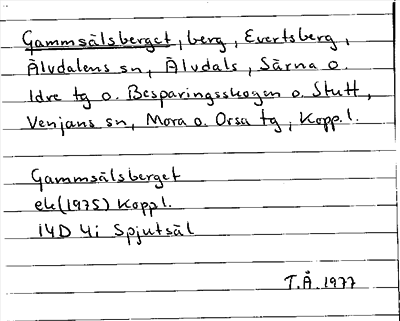 Gammsälsberget, berg, Evertsberg,
Älvdalens sn, Älvdals, Särna o.
Idre tg o. Besparingsskogen o. Stutt,
Venjans sn, Mora o. Orsa tg, Kopp. l.
Gammsälsberget
ek (1975) Kopp l.
14D 4i Spjutsäl
T.Å. 1977